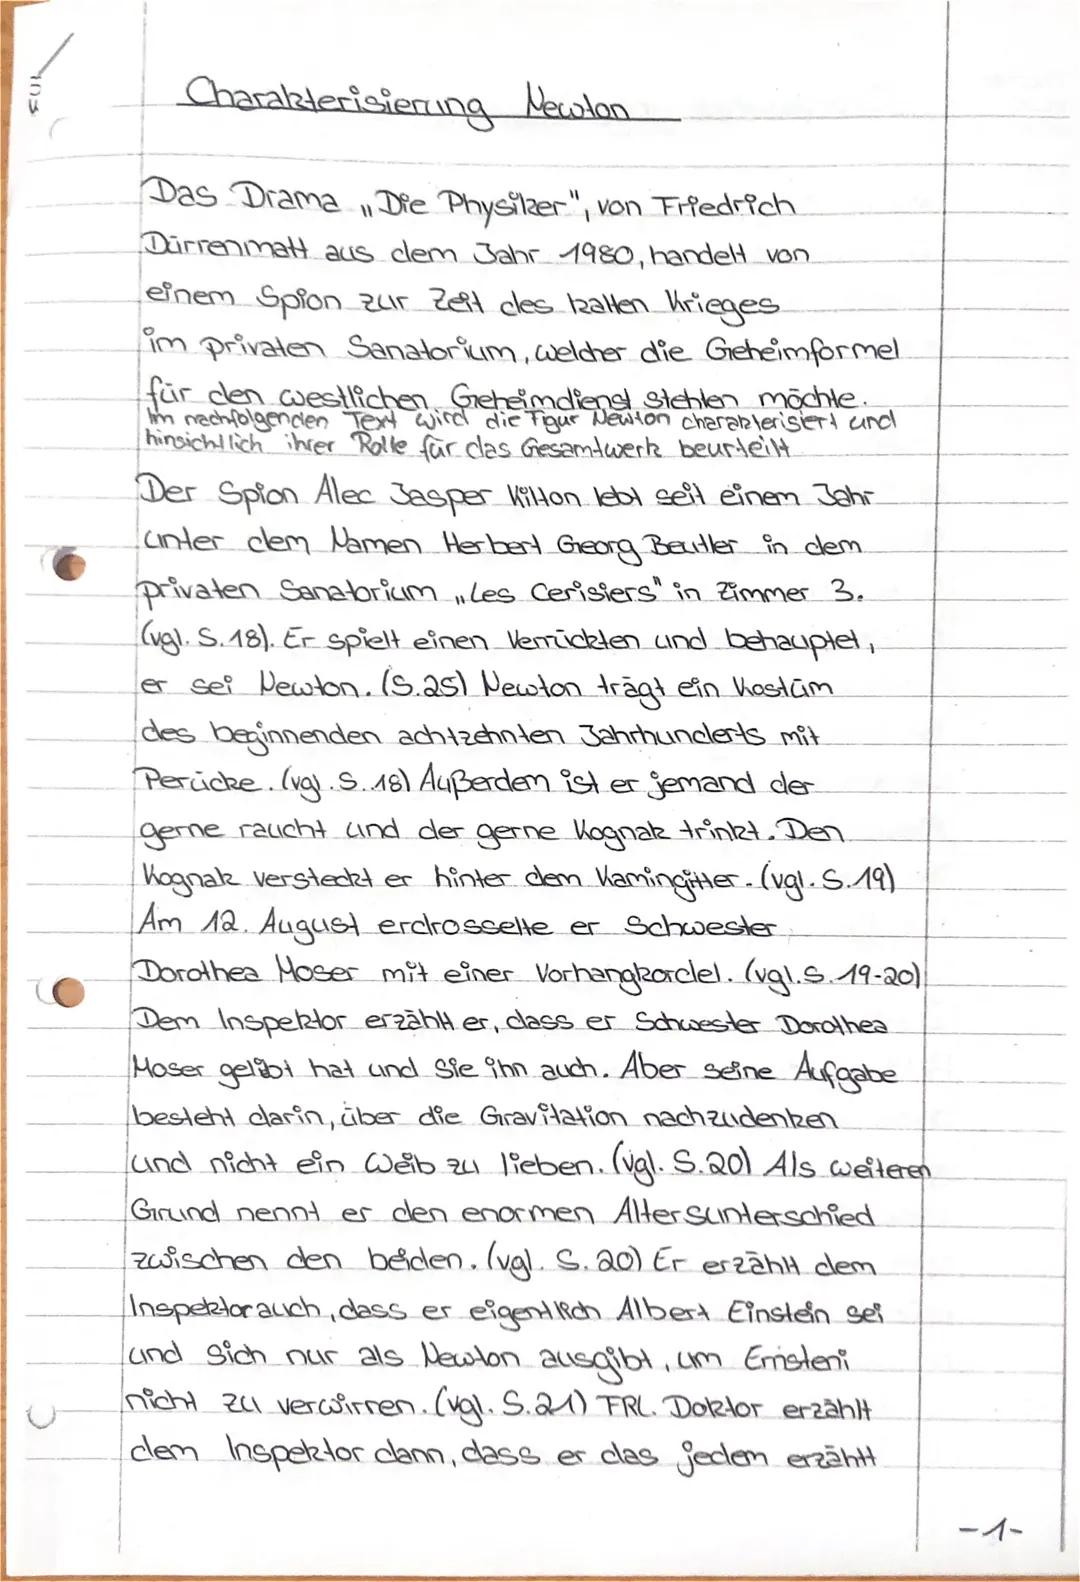 Charakterisierung Newton
Das Drama „Die Physiker", von Friedrich
Dürrenmatt aus dem Jahr 1980, handelt von
einem Spion zur Zeit des kalten Krieges
im privaten Sanatorium, welcher die Geheimformel
für den westlichen Geheimdienst stehlen möchte.
Im nachfolgenden Text wird die Figur Newton charakterisiert und
hinsichtlich ihrer Rolle für das Gesamtwerk beurteilt
Der Spion Alec Jasper Kilton lebt seit einem Jahr
unter dem Namen Herbert Georg Beutler in dem
privaten Sanatorium „Les Cerisiers" in Zimmer 3.
(vgl. S. 18). Er spielt einen Verrückten und behauptet,
er sei Newton. (S.25) Newton trägt ein Kostüm
des beginnenden achtzehnten Jahrhunderts mit
Perücke. (vgl. S. 18) Außerdem ist er jemand der
gerne raucht und der gerne Kognak trinkt. Den
Kognak versteckt er hinter dem Kamingitter. (vgl. S. 19)
Am 12. August erdrosselte er Schwester
Dorothea Moser mit einer Vorhangkordel. (vgl. S. 19-20)
Dem Inspektor erzählt er, dass er Schwester Dorothea
Moser geliebt hat und Sie ihn auch. Aber seine Aufgabe
besteht darin, über die Gravitation nachzudenken
und nicht ein Weib zu lieben. (vgl. S.20) Als weiteren
Grund nennt er den enormen Altersunterschied
zwischen den beiden. (vgl. S. 20) Er erzählt dem
Inspektor auch, dass er eigentlich Albert Einstein sei
und sich nur als Newton ausgibt, um Ernsteni
nicht zu verwirren. (vgl. S.21) FRL. Doktor erzählt
dem Inspektor dann, dass er das jedem erzählt
-1-